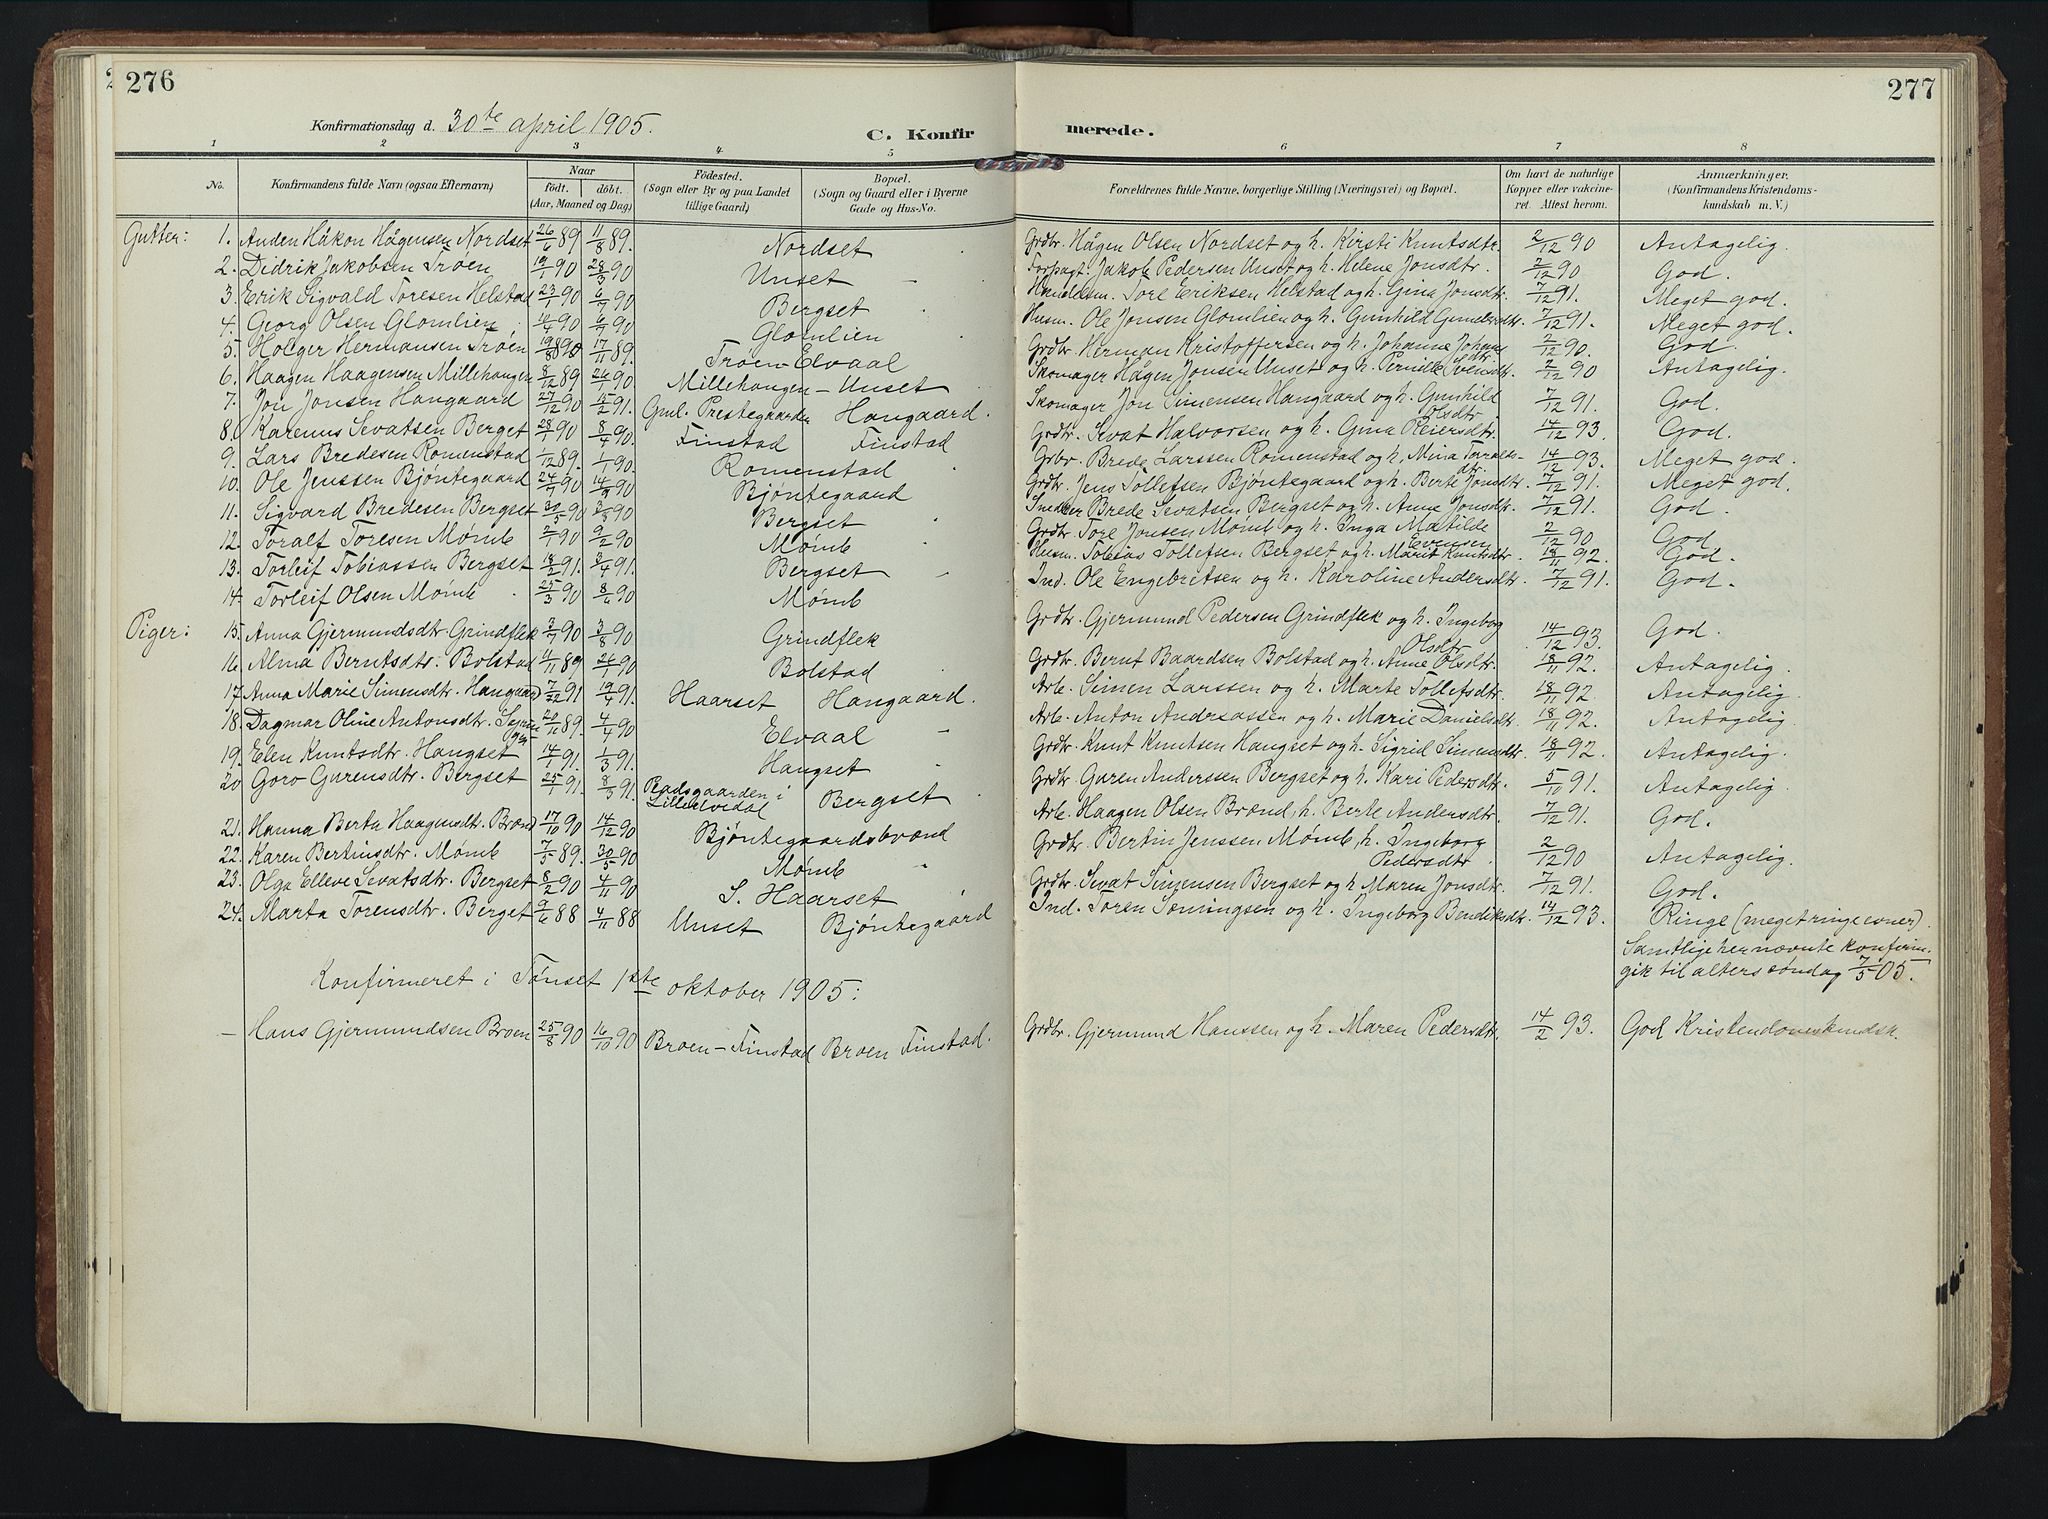 276
277
Konfirmationsdag d. 30te april 1905.
C. Konfir
merede.
1 2 3 4 5 6 7 8
No.
Konfirmandens fulde Navn (ogsaa Efternavn)
Naar
födt. döbt.
(Aar, Maaned og Dag)
Födested.
(Sogn eller By og paa Landet
tillige Gaard)
Bopæl.
(Sogn og Gaard eller i Byerne
Gade og Hus-No.
Forældrenes fulde Navne, borgerlige Stilling (Næringsvei) og Bopæl.
Om havt de naturlige
Kopper eller vakcine-
ret. Attest herom.
Anmærkninger.
(Konfirmandens Kristendoms-
kundskab m. V.)
Gutter: 1. Anden Håkon Hågensen Nordset 26/6 89 11/8 89. Nordset Grdbr. Hågen Olsen Nordset og h. Kirsti Knutsdtr. 2/12 90 Antagelig.
2. Didrik Jakobsen Trøen 19/1 90 28/3 90 Unset Forpagt. Jakob Pedersen Unset og h. Helene Jonsdtr. 7/12 90 God.
3. Erik Sigvald Toresen Helstad 23/1 90 6/7 90 Bergset Handelsm. Tore Eriksen Helstad og h. Gina Jonsdtr. 7/12 91. Meget god.
4. Georg Olsen Glomlien 90 90 Glomlien Husm. Ole Jonsen Glomlien og h. Gunhild 7/12 91. Meget god.
5. Holger Hermansen Trøen 19/8 17/11 89. Trøen-Elvaal Grdbr. Herman Kristoffersen og h. Johanne 2/12 90. God.
6. Haagen Haagensen Millehaugen 8/12 89 26/1 90. Millehaugen-Unset Skomager Hågen Jonsen Unset og h. Pernille Svendsdtr. 2/12 90 Antagelig.
7. Jon Jonsen Haugaard 27/12 90 15/2 91. Gml. Prestegaarden Haugaard. Skomager Jon Simensen Haugaard og h. Gunhild
Olsdtr. 7/12 91. God.
8. Karenus Sevatsen Berget 28/1 90 8/4 90. Finstad Finstad Grdbr. Sevat Halvorsen og h. Gina Peiersdtr. 14/12 93. God.
9. Lars Bredesen Romenstad 1/12 89. 1/1 90. Romenstad Grbr. Brede Larssen Romenstad og h. Mina
dtr. 14/12 93. Meget god.
10. Ole Jenssen Bjöntegaard 24/7 90 14/9 90 Bjöntegaard Grdbr. Jens Tollefsen Bjöntegaard og h. Berte Jonsdtr. 7/12 91. Meget god.
11. Sigvard Bredesen Bergset 30/5 90 90 Bergset Brede Sevatsen Bergset og h. Anne Jonsdtr. 7/12 91. God.
12. Toralf Toresen Mömb 2/1 90 9/2 90. Mömb Grdbr. Tore Jonsen Mömb og h. Inga Matilde
Evensen 2/12 90 God
13. Torleif Tobiassen Bergset 18/2 91. 3/4 91. Bergset Husm. Tobias Tollefsen Bergset og h. Marit Knutsdtr. 18/11 92. God.
14. Torleif Olsen Mömb 25/3 90 8/6 90 Mömb Ind. Ole Engebretsen og h. Karoline Andersdtr. 7/12 91. God.
Piger: 15. Anna Gjermundsdtr. Grindflek 3/7 90 3/8 90 Grindflek Grdbr. Gjermund Pedersen Grindflek og h. Ingeborg
Olsdtr. 14/12 93. God.
16. Alma Berntsdtr. Bolstad 11/11 89 26/1 90 Bolstad Grdbr. Bernt Baardsen Bolstad og h. Anne Olsdtr. 18/11 92. Antagelig.
17. Anna Marie Simensdtr. Haugaard 91 19/4 91. Haarset Haugaard. Arb. Simen Larssen og h. Marte Tollefsdtr. 18/11 92 Antagelig.
18. Dagmar Oline Antonsdtr. 20/11 89. 4/4 90 Elvaal Arb. Anton Andreassen og h. Marie Danielsdtr. 18/11 92. Antagelig.
19. Elen Knutsdtr. Haugset 14/1 91. 1/3 91. Haugset Grdbr. Knut Knutsen Haugset og h. Sigrid Simensdtr. 18/11 92. Antagelig.
20 Goro Gurensdtr. Bergset 25/1 91. 8/3 91. i
Lilleelvedal Bergset Grdbr. Guren Anderssen Bergset og h. Kari Pedersdtr. 5/10 91. Antagelig.
21. Hanna Berta Haagensdtr. Brænd 17/10 90 14/12 90 Bjöntegaardsbrænd Arb. Haagen Olsen Brænd, h. Berte Andersdtr. 7/12 91. God.
22. Karen Bertinsdtr. Mömb 7/5 89. 30/5 90 Mömb Grdbr. Bertin Jenssen Mömb, h. Ingeborg
Pedersdtr. 2/12 90 Antagelig.
23. Olga Elleve Sevatsdtr. Bergset 8/2 90 4/11 90 S. Haarset Grdbr. Sevat Simensen Bergset og h. Maren Jonsdtr. 7/12 91. God.
24. Marta Torensdtr. Berget 9/6 88 4/11 88 Unset Bjöntegaard Ind. Toren Sömingsen og h. Ingeborg Bendiksdtr. 14/12 93. Ringe (meget ringe evner).
Samtlige her nævnte konfirm.
gik til alters söndag 7/5 05.
Konfirmeret i Tönset 1ste oktober 1905:
— Hans Gjermundsen Broen 25/8 90 16/10 90 Broen-Finstad Broen Finstad. Grdbr. Gjermund Hanssen og h. Maren Pedersdtr. 14/2 93. God Kristendomskundsk.